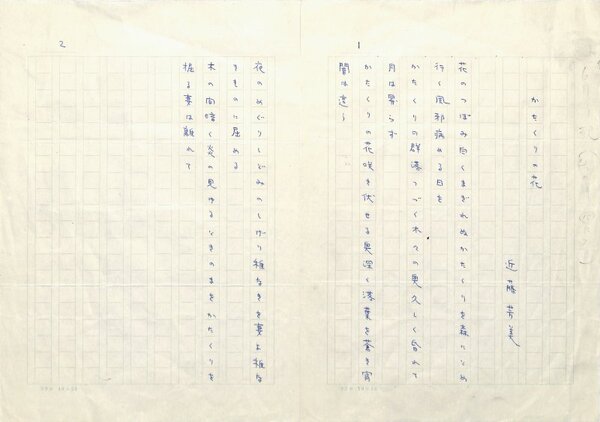 1
かたくりの花
近藤芳美
花のつぼみ白くまぎれぬかたくりを森になめ
行く風邪病める日を
かたくりの群落つづく木々の奥久しく昏れて
月は昇らず
かたくりの花咲き伏せる奥深く落葉を蒼き宵
闇は遠く
2
夜のめぐりしどみのしげり稚なきを妻よ稚な
きものに屈める
木の間暗く炎の見ゆるときのまをかたくりを
掘る妻は離れて